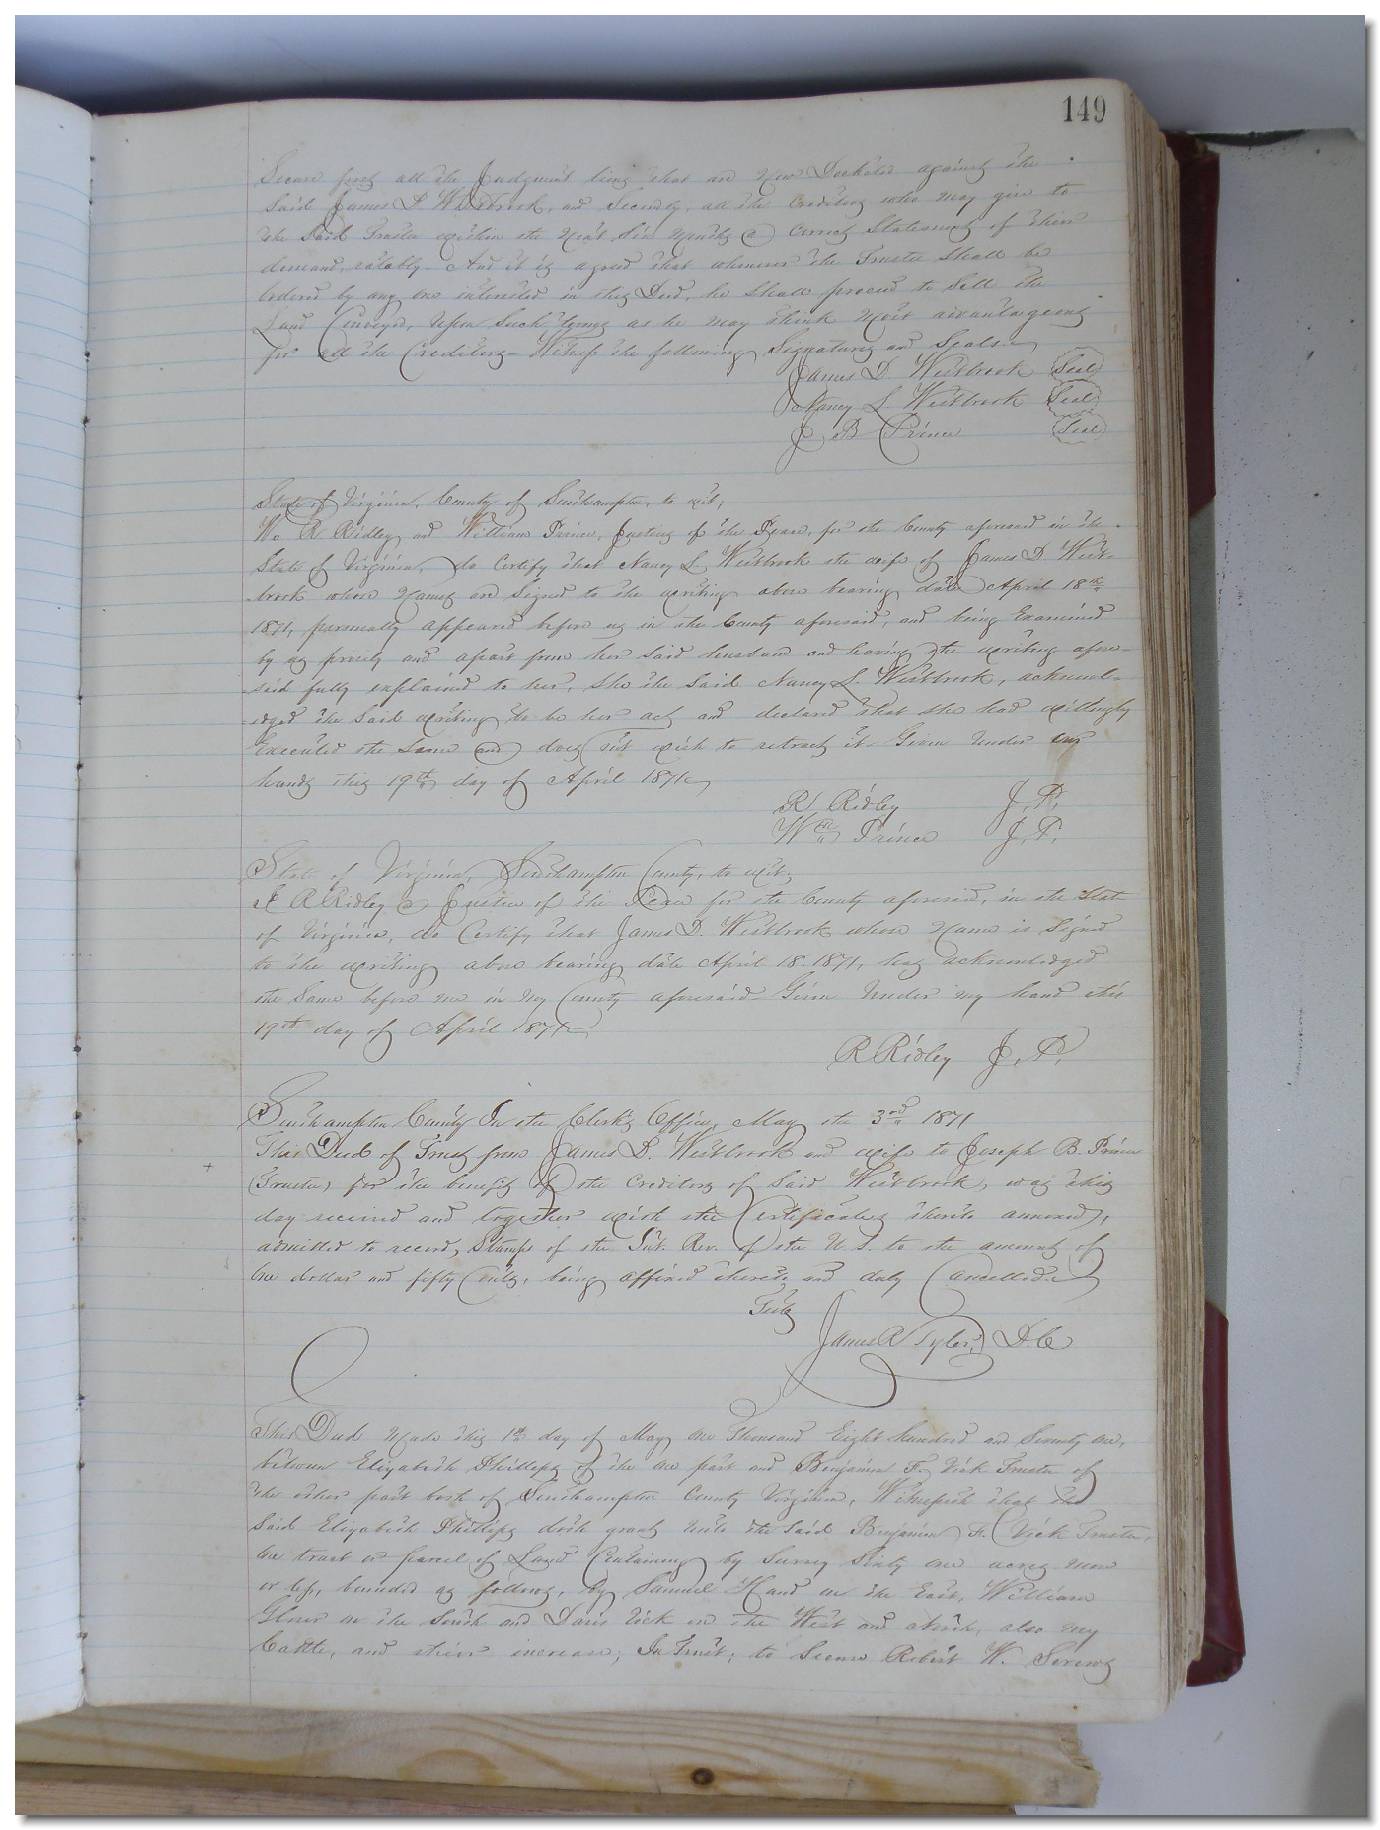 149
Secure first all the Judgment liens that are now Docketed against the
Said James D. Westbrook, and Secondly, all the Creditors who may give to
the Said Trustee within the next Six months a Correct Statement of their
demand, ratably. And it is agreed that whenever the Trustee Shall be
Ordered by any one interested in this Deed, he Shall proceed to Sell the
Land Conveyed, Upon Such terms as he may think most advantageous
for all the Creditors - Witness the following Signatures and Seals.
James D. Westbrook Seal
Nancy L. Westbrook Seal
J B Prince Seal
State of Virginia, County of Southampton, to wit,
We R Ridley and William Prince, Justices of the Peace, for the County aforesaid in the
State of Virginia, do Certify that Nancy L Westbrook the wife of James D West-
brook whose names are Signed to the writing above bearing date April 18th
1871, personally appeared before us in the County aforesaid, and being Examined
by us privily and apart from her said husband and having the writing afore-
said fully explained to her, She the Said Nancy L. Westbrook, acknowl-
edged the Said writing to be her act and declared that she had willingly
Executed the Same and does not wish to retract it - Given Under our
hands this 19th day of April 1871
R Ridley J.P.
Wm Prince J.P.
State of Virginia, Southampton County, to wit,
I R Ridley a Justice of the Peace for the County aforesaid, in the Stat
of Virginia, do Certify that James D. Westbrook whose Name is Signed
to the writing above bearing date April 18. 1871, has acknowledged
the Same before me in my County aforesaid Given Under my hand this
19th day of April 1871
R Ridley J.P.
Southampton County In the Clerk's Office, May the 3rd 1871
This Deed of Trust from James D. Westbrook and wife to Joseph B. Prince
Trustee, for the benefit of the Creditors of Said Westbrook, was this
day received and together with the Certificates thereto annexed,
admitted to record, Stamps of the Int. Rev. of the U.S. to the amount of
One dollar and fifty Cents, being affixed thereto and duly Cancelled.
Teste
James R Tyler, D.C
This Deed Made this 1st day of May One Thousand Eight hundred and Seventy one,
between Elizabeth Phillips of the one part and Benjamin F. Vick Trustee of
the other part both of Southampton County Virginia, Witnesseth that the
Said Elizabeth Phillips doth grant unto the Said Benjamin F. Vick Trustee,
One tract or parcel of Land Containing by Survey Sixty one acres more
or less, bounded as follows, By Samuel Hand on the East, William
Glover on the South and Davis Vick on the West and North, also my
Cattle, and their increase; In Trust; to Secure Robert W.